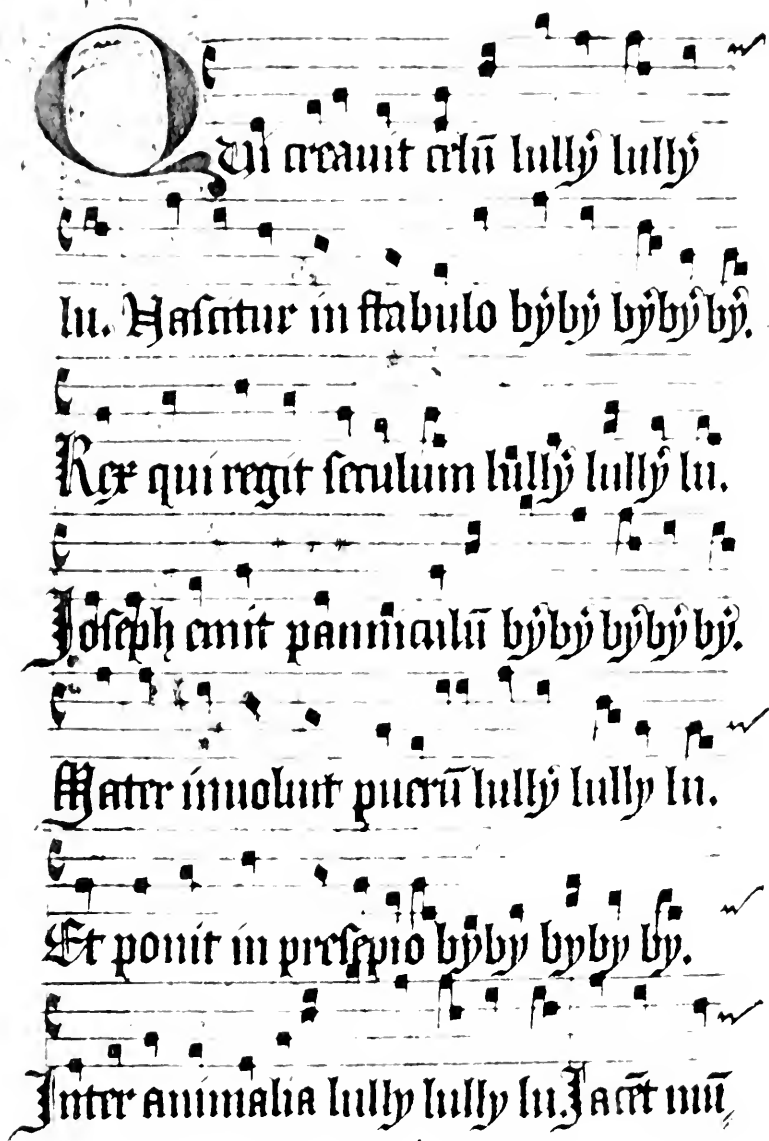 Qui creauit celū lullẏ lullẏ
lu. Nascitur in stabulo bẏbẏ bẏbẏ bẏ.
Rex qui regit seculum lullẏ lullẏ lu.
Joseph emit panniculū bẏbẏ bẏbẏ bẏ.
Mater inuoluit puerū lullẏ lully lu.
Et ponit in presepio bẏbẏ byby by.
Inter animalia lully lully lu. Jacēt mū